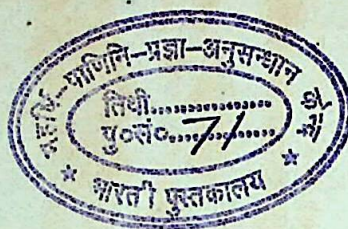 महर्षि-पाणिनि-प्रज्ञा-अनुसन्धान केन्द्र
तिथी..............
पु०सं०....71........
* भारती पुस्तकालय *